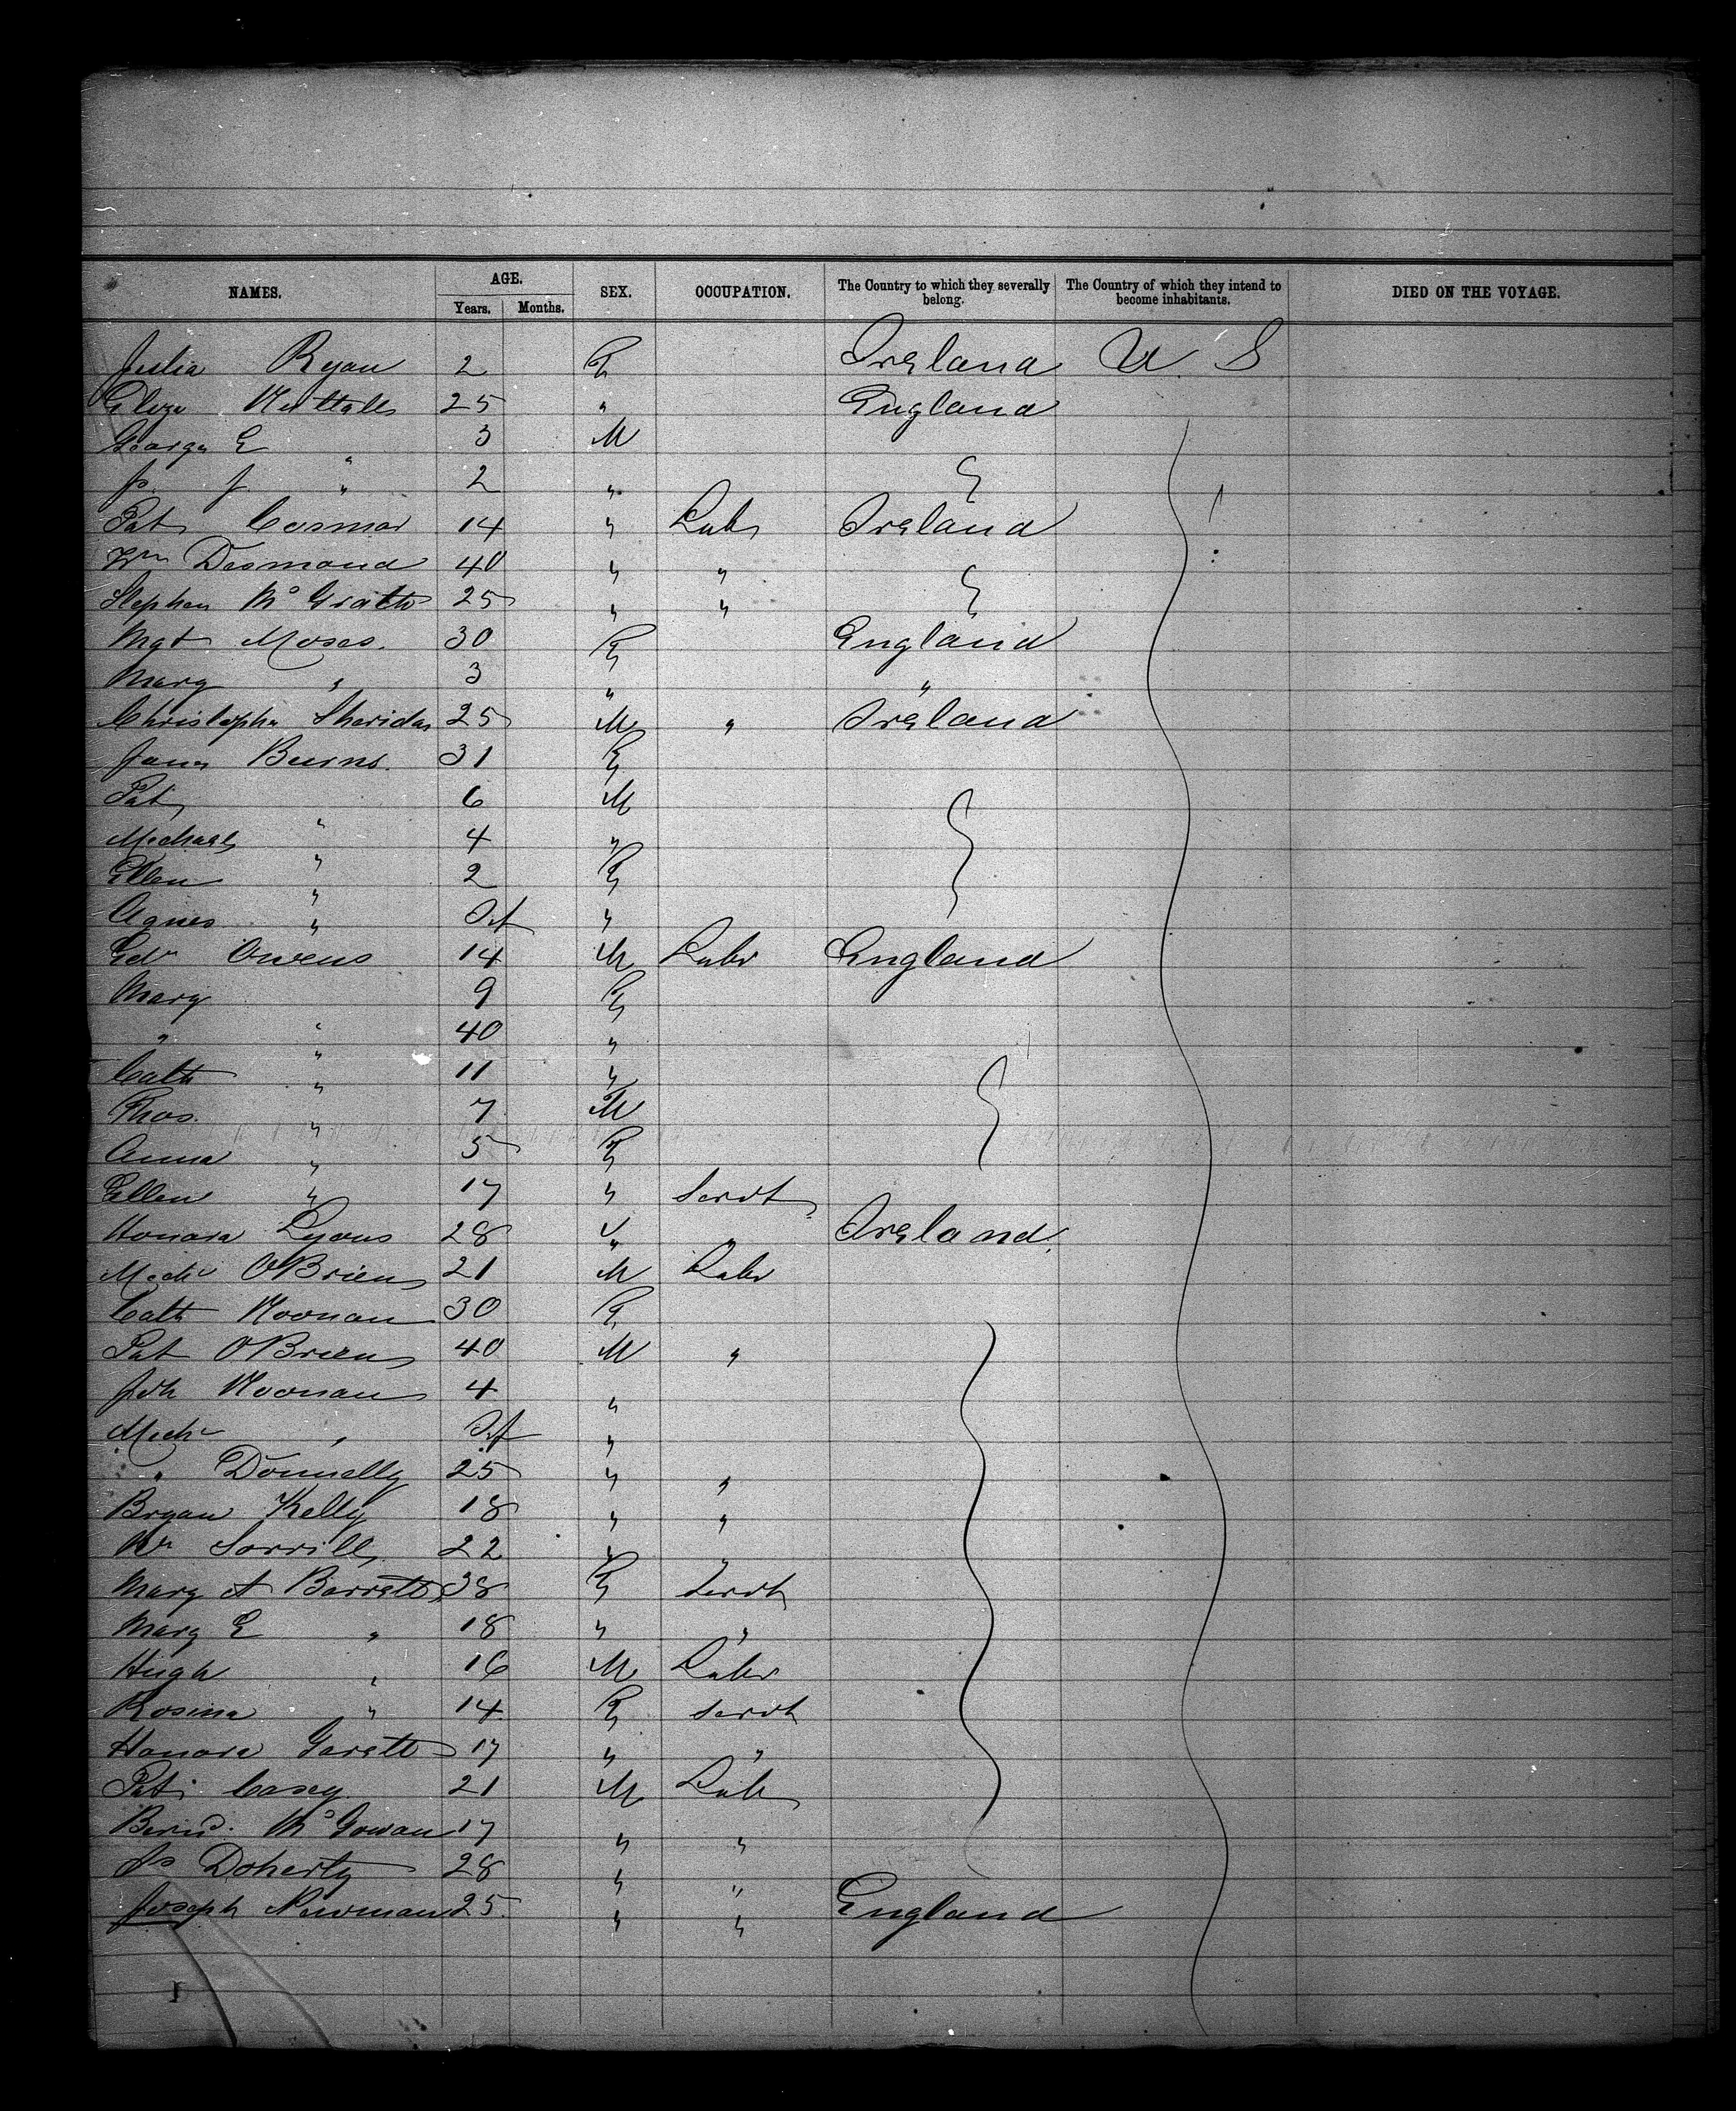 NAMES. AGE. SEX. OCCUPATION. The Country to which they severally belong. The Country of which they intend to become inhabitants. DIED ON THE VOYAGE.
Years. Months.
Julia Ryan 2 F Ireland U. S
Eliza Nuttall 25 " England
George E " 3 M
Js. J. " 2 "
Pat 14 " Labr Ireland
Wm Desmond 40 " "
Stephen McGrath 25 " "
Mgt Moses. 30 F England
Mary " 3 " "
Christopher Sheridan 25 M " Ireland
Burns. 31 F
Pat " 6 M
Michael " 4 "
Ellen " 2 F
Agnes " Inf "
Edw Owens 14 M Labr England
Mary " 9 F
" " 40 "
Cath " 11 "
Thos. " 7 M
Anna " 5 F
Ellen " 17 " Servt
Honora Lyons 28 " " Ireland.
Michl O'Brien 21 M Labr
Cath Noonan 30 F
Pat O'Brien 40 M "
Joh Noonan 4 "
Michl " Inf "
" Donnelly 25 " "
Bryan Kelly 18 " "
22 " "
Mary A Barrett 38 F Servt
Mary E " 18 " "
Hugh " 16 M Labr
Rosina " 14 F Servt
Honora 17 " "
Pat Casey 21 M Labr
Bernd. McGowan 17 " "
Js Doherty 28 " "
Joseph Newman 25 " " England